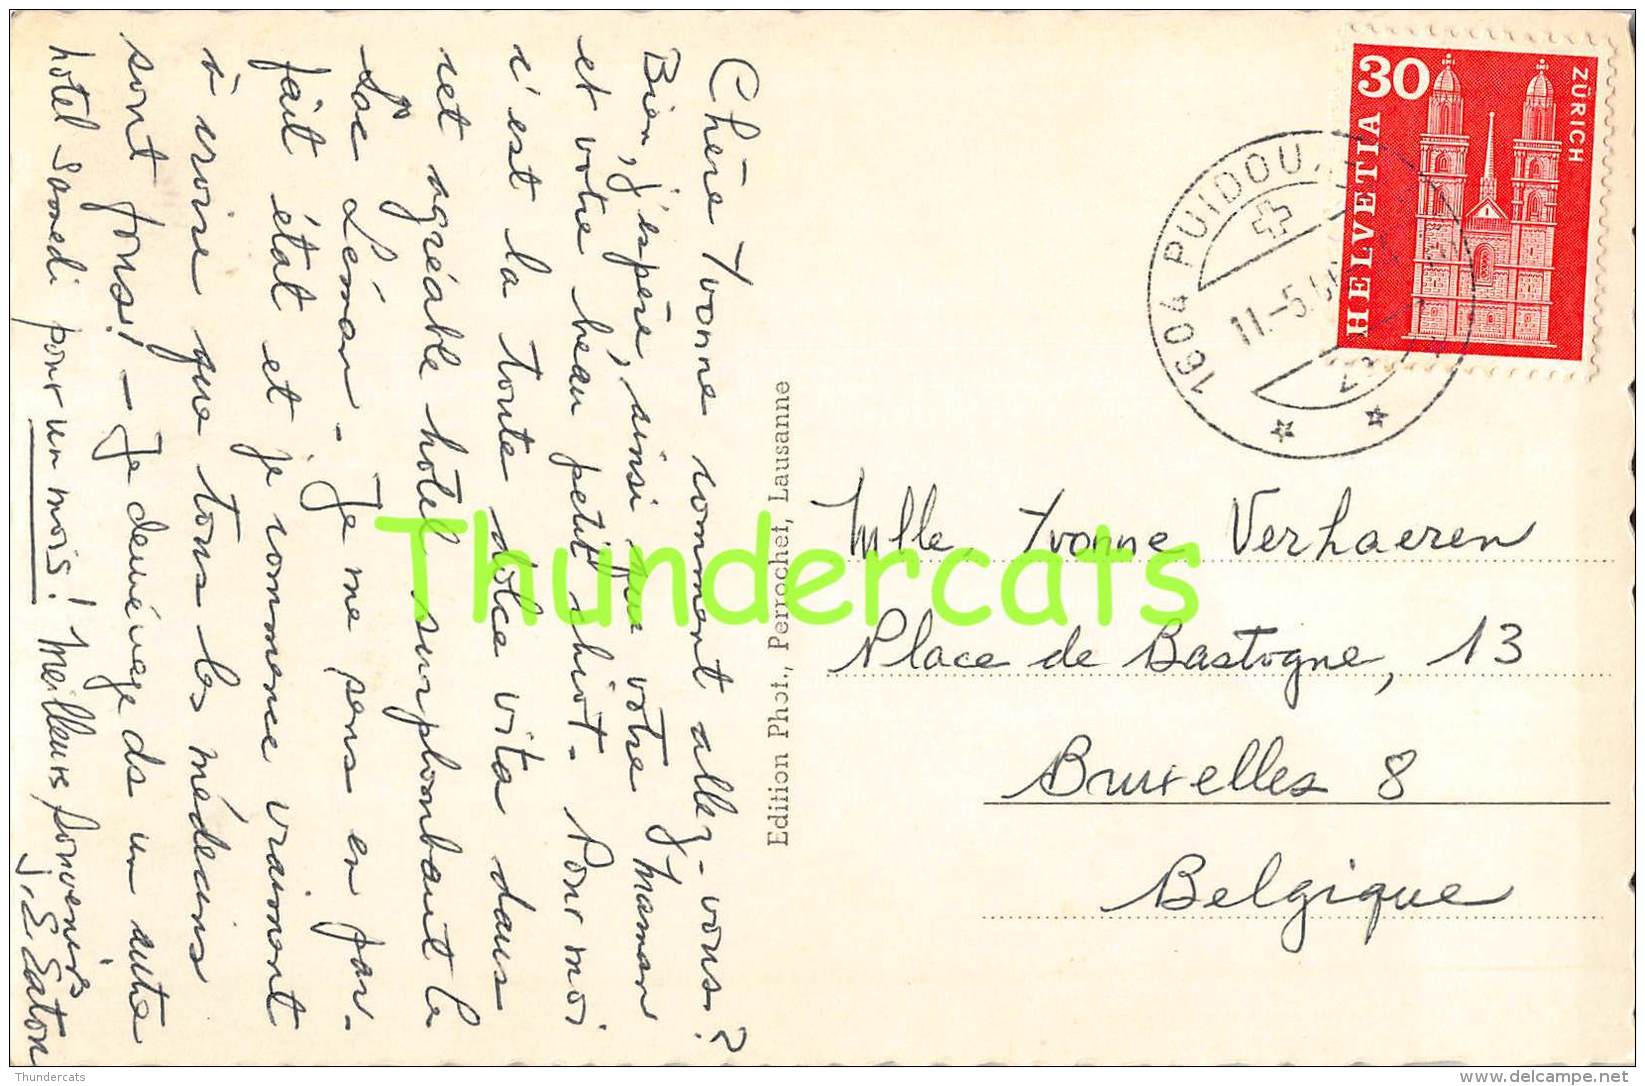 Chère Yvonne comment allez-vous?
Bien, j'espère, ainsi que votre Maman
et votre beau petit chiot. Pour moi
c'est la toute dolce vita dans
cet agréable hôtel surplombant le
Lac Léman. Je me sens en par-
fait état et je commence vraiment
à croire que tous les médecins
sont fous! - Je déménage ds un autre
hôtel Samedi pour un mois! Meilleurs souvenirs
J. E. Eaton
Edition Phot., Perrochet, Lausanne
30
HELVETIA
ZÜRICH
1604 PUIDOU
11.-5.
Mlle Yvonne Verhaeren
Place de Bastogne, 13
Bruxelles 8
Belgique
Thundercats
Thundercats
www.delcampe.net